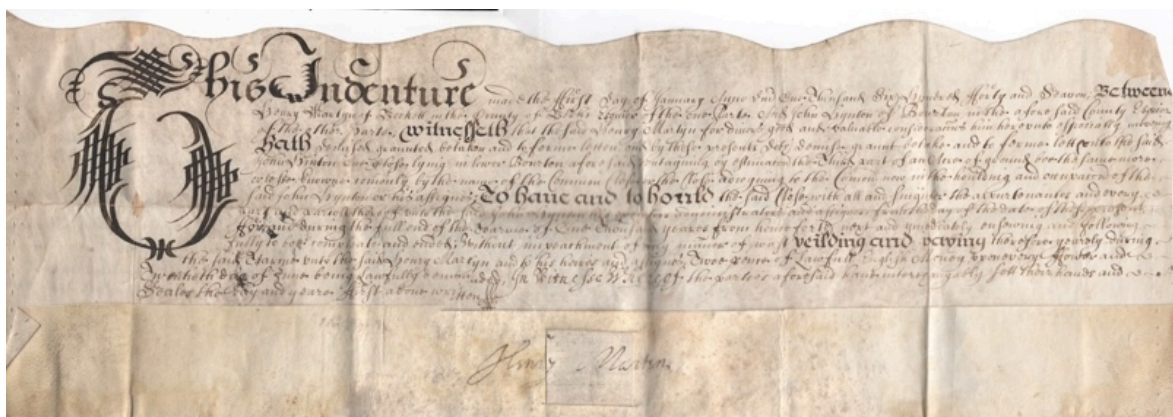 This Indenture made the ffirst day of January Anno Dni One Thousand Six Hundred fforty and Seaven Between
Henry Martyn of Beckett in the County of Berks Esquier of the one Parte And John Wynton of Bourton in the aforesaid County
of the other Parte witnesseth that the said Henry Martyn for divers good and valuable consideracons him hereunto especially moving
Hath demised graunted betaken and to farme letten And by these presents doth demise graunt betake and to farme lett unto the said
John Wynton One Close lying in lower Bourton aforesaid contayning by estimacon the Third part of an acre of ground bee the same more
or lesse knowne comonly by the name of the Common Close adjoyning to the Comon now in the houlding and occupacon of the
said John Wynton or his assignes To have and to hould the said Close with all and singuler the appurtenances and every
part and parcell thereof unto the said John Wynton administrators and assignes from the day of the date of these presents
for and during the full end of the Tearme of One thousand yeares from henceforth next and imediately ensewing and following
fully to bee compleate and ended without impeachment of any manner of wast yeilding and paying therefore yearely during
the said Tearme unto the said Henry Martyn and to his heires and assignes Twoe pence of lawfull English Money
Twentieth day of June being lawfully demanded In Witnesse Whereof the parties aforesaid have interchangably sett their hands and
Seales the day and yeare ffirst above written
Henry Marten